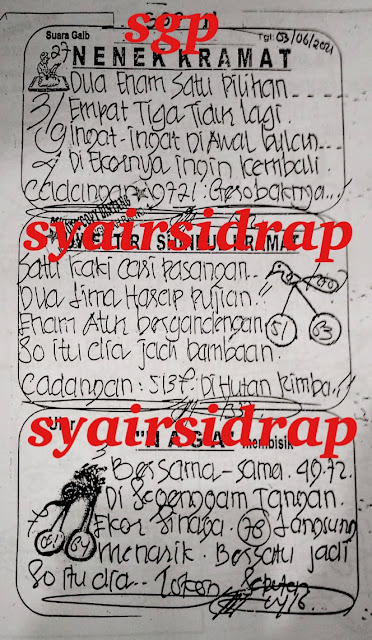 sgp
Suara Gaib
Tgl 03/06/2021
27
NENEK KRAMAT
Dua Enam Satu Pilihan
Empat Tiga Tidak lagi.
Ingat-ingat Di Awal bulan
Di Ekornya ingin kembali.
Cadangan 9721. Gesobaknya..!
syairsidrap
KRAMAT
Satu kaki cari pasangan
Dua Lima Harap pujian!!
Enam Atuh bergandengan
51 63
80 itu dia jadi bambaan.
Cadangan : 5137. Di Hutan Rimba..!
syairsidrap
"NAGA" membisik
Bersama-sama. 49.72.
Di Segenggam Tangan
Ekor Sinaga. 78 Langsung
menarik. Bersatu jadi
80 itu dia..